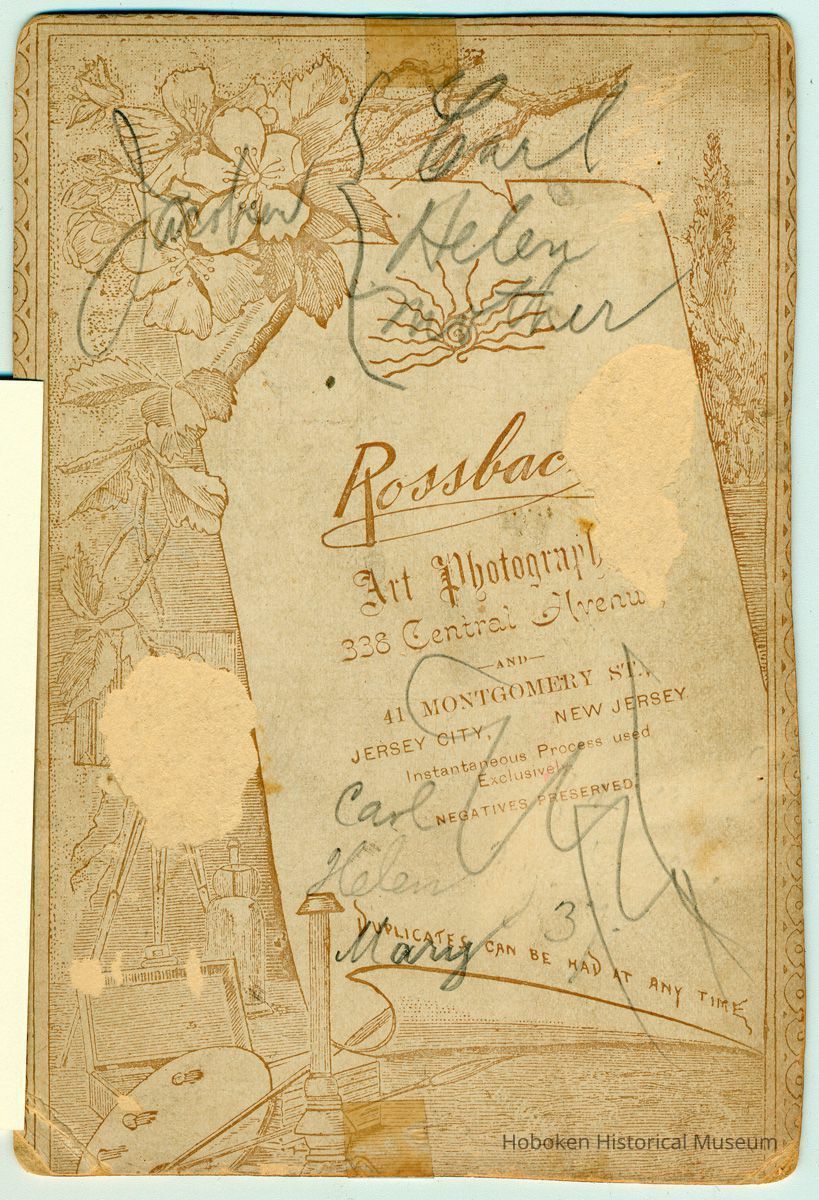 Carl
Helen
Mother
Rossbac
Art Photograph
338 Central Avenu
—AND—
41 MONTGOMERY ST.,
JERSEY CITY, NEW JERSEY
Instantaneous Process used
Exclusivel
NEGATIVES PRESERVED.
Carl
Helen
Mary 3
DUPLICATES CAN BE HAD AT ANY TIME
Hoboken Historical Museum